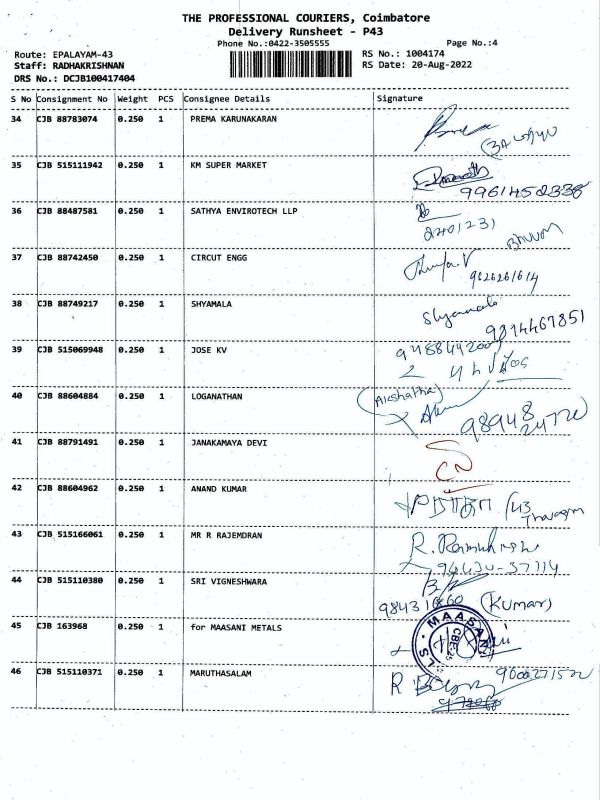 THE PROFESSIONAL COURIERS, Coimbatore
Delivery Runsheet - P43
Phone No.:0422-3505555 Page No.:4
Route: EPALAYAM-43 RS No.: 1004174
Staff: RADHAKRISHNAN RS Date: 20-Aug-2022
DRS No.: DCJB100417404
S No Consignment No Weight PCS Consignee Details Signature
34 CJB 88783074 0.250 1 PREMA KARUNAKARAN
35 CJB 515111942 0.250 1 KM SUPER MARKET
9961452338
36 CJB 88487581 0.250 1 SATHYA ENVIROTECH LLP
2401231
37 CJB 88742450 0.250 1 CIRCUT ENGG
38 CJB 88749217 0.250 1 SHYAMALA Shyamala
9814467851
39 CJB 515069948 0.250 1 JOSE KV
40 CJB 88604884 0.250 1 LOGANATHAN (Akshatha)
98948
24772
41 CJB 88791491 0.250 1 JANAKAMAYA DEVI
CN
42 CJB 88604962 0.250 1 ANAND KUMAR
43 CJB 515166061 0.250 1 MR R RAJEMDRAN
44 CJB 515110380 0.250 1 SRI VIGNESHWARA
(Kumar)
45 CJB 163968 0.250 1 for MAASANI METALS MAASANI
46 CJB 515110371 0.250 1 MARUTHASALAM